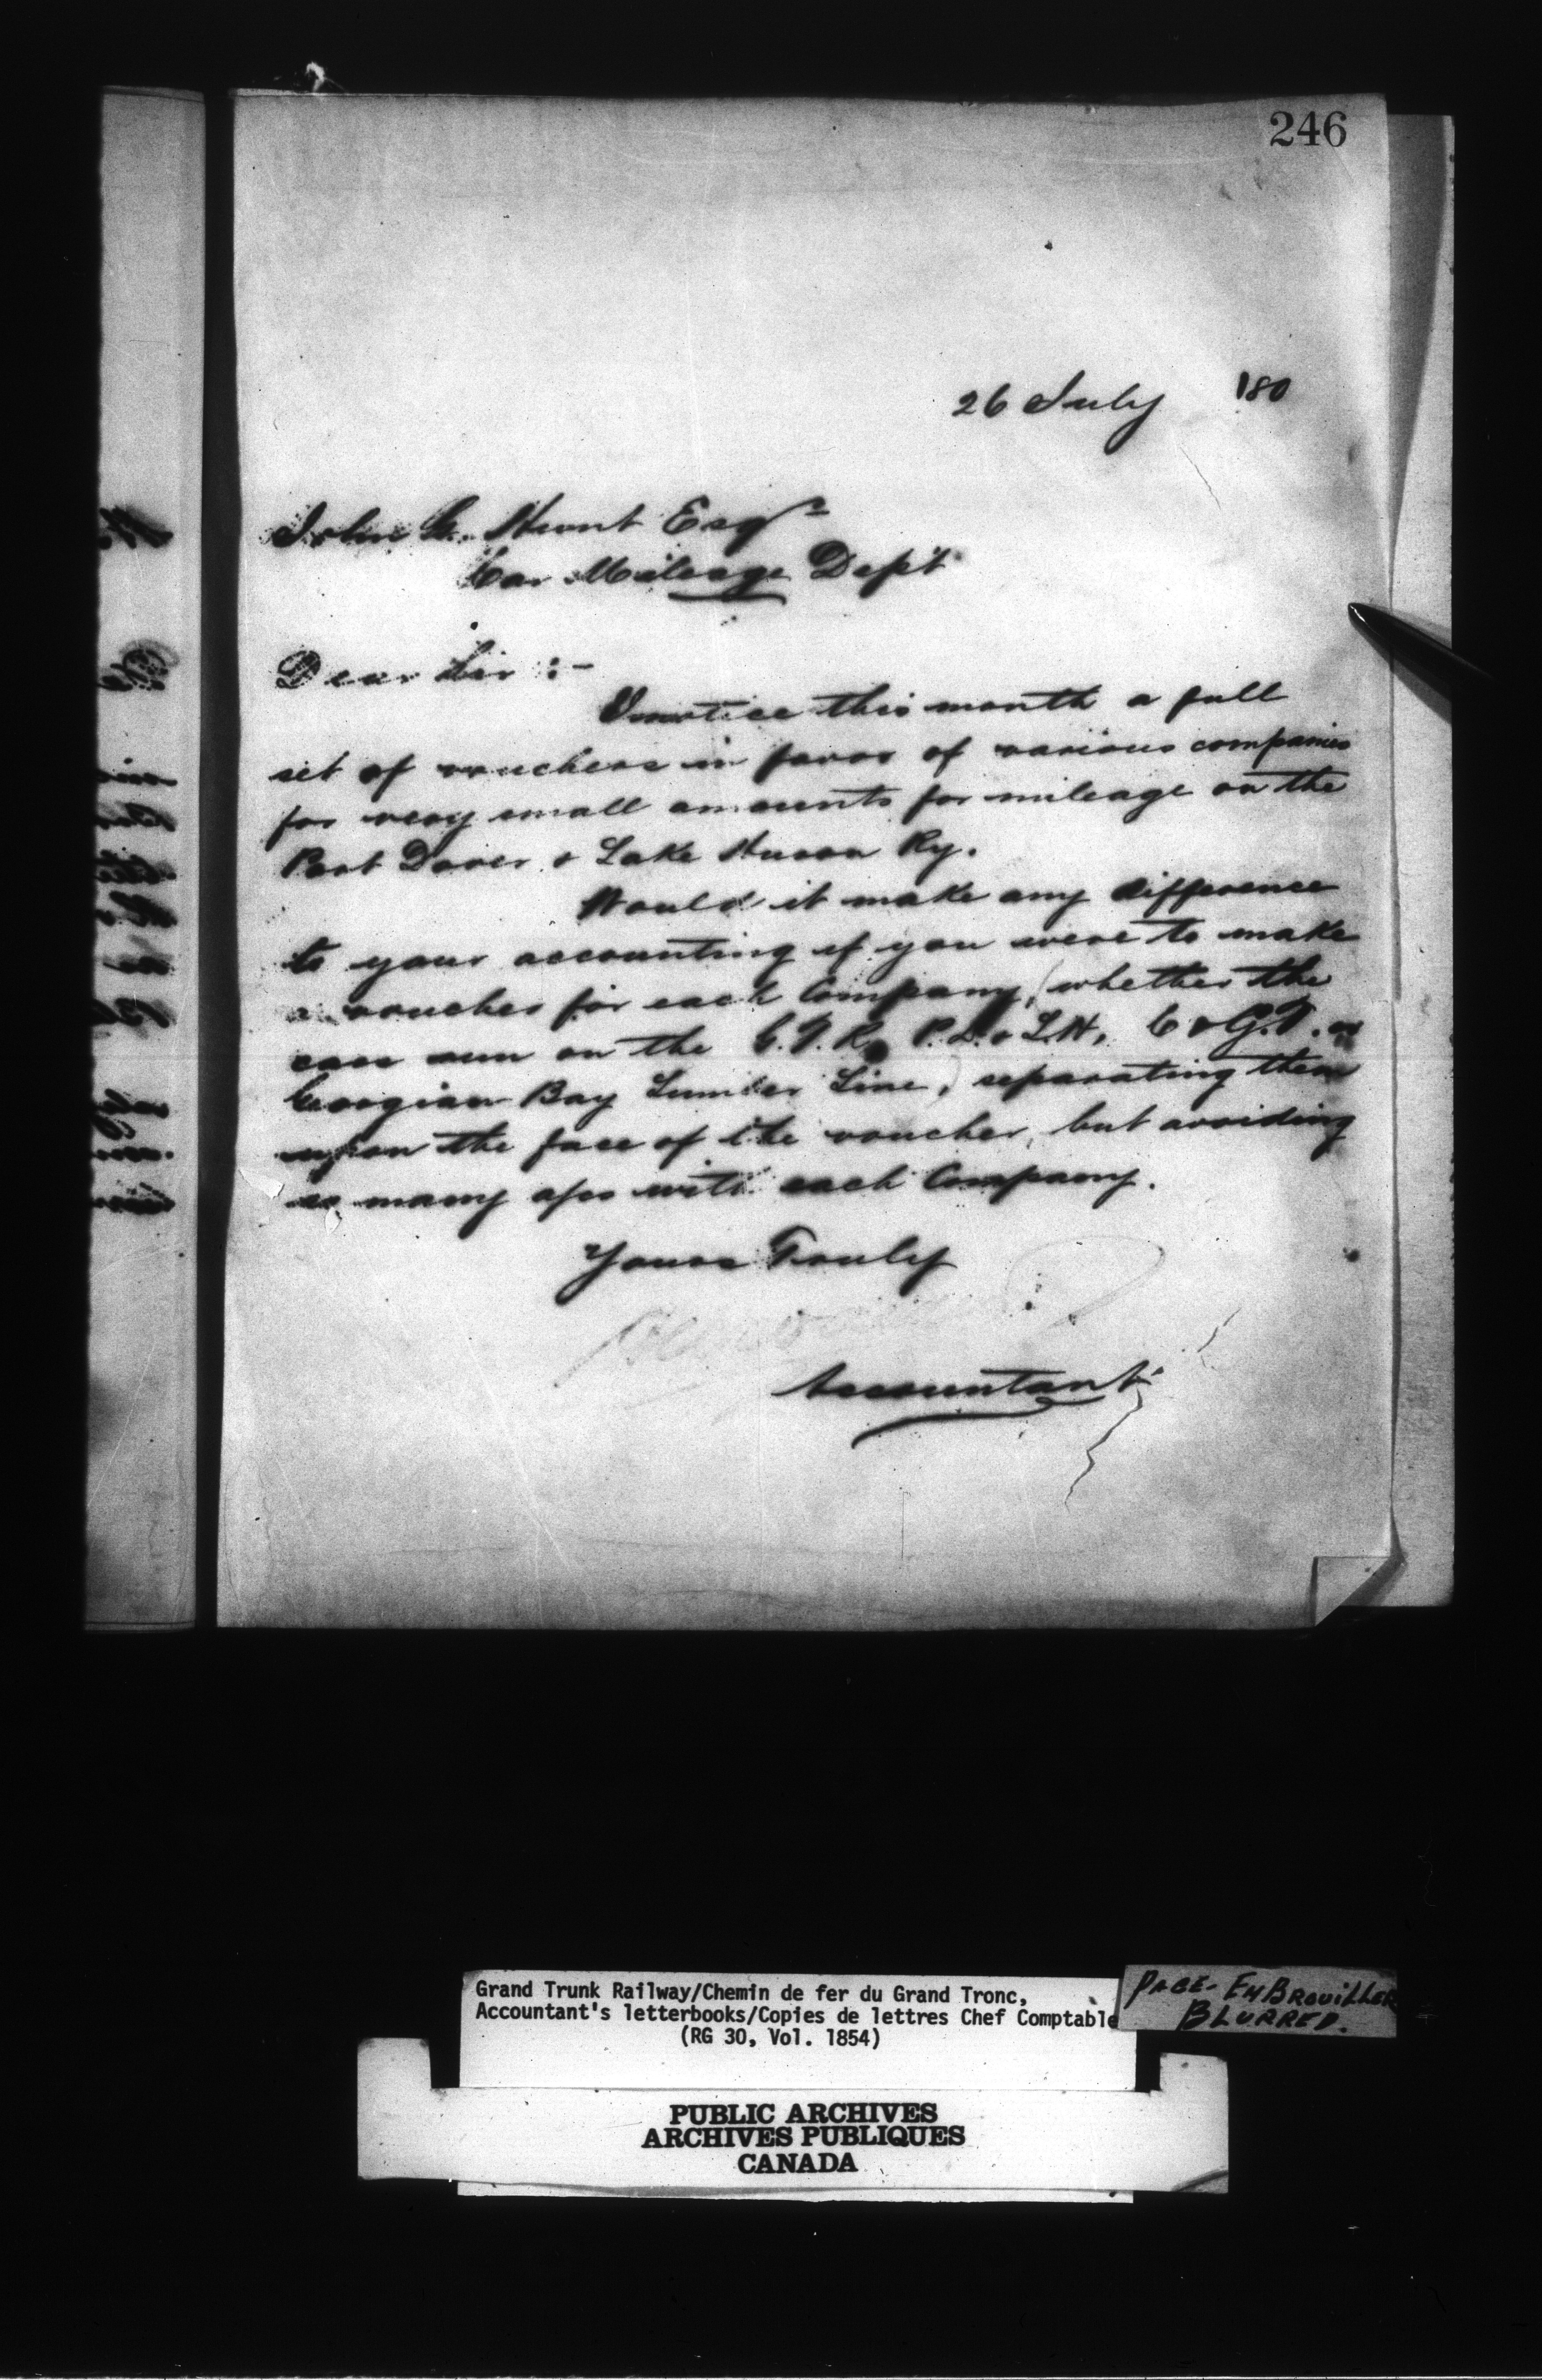 246
26 July 180
John G. Hunt Esqr
Car Mileage Dep't
Dear Sir :-
I notice this month a full
set of vouchers in favor of various companies
for very small amounts for mileage on the
Port Dover & Lake Huron Ry.
Would it make any difference
to your accounting if you were to make
a voucher for each Company, (whether the
cars run on the G.T.R. P.D. & L.H, C & G.T. or
Georgian Bay Lumber Line) separating them
upon the face of the voucher, but avoiding
so many with each Company.
Yours Truly
Accountant
Grand Trunk Railway/Chemin de fer du Grand Tronc,
Accountant's letterbooks/Copies de lettres Chef Comptable
(RG 30, Vol. 1854)
PAGE - EMBROUILLER
BLURRED.
PUBLIC ARCHIVES
ARCHIVES PUBLIQUES
CANADA